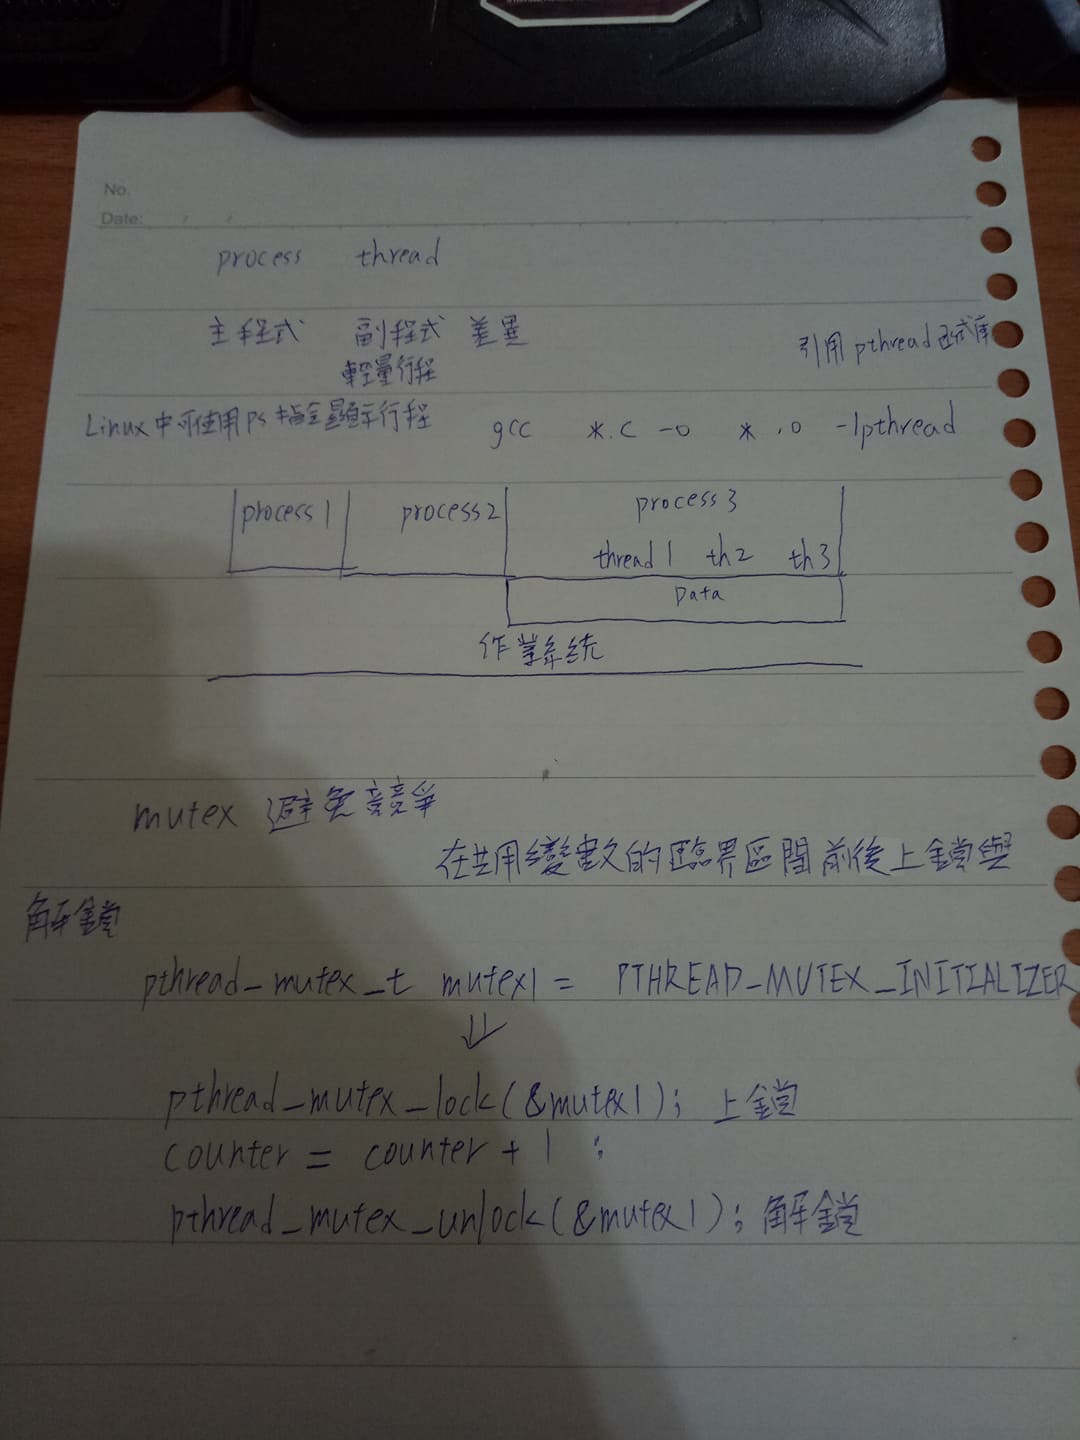 No.
Date:
process thread
主程式 副程式 差異
輕量行程
引用 pthread 函式庫
Linux中可使用ps指令顯示行程
gcc *.c -o *.o -lpthread
process1 process2 process3
thread1 th2 th3
Data
作業系統
mutex 避免競爭
在共用變數的臨界區間前後上鎖與
解鎖
pthread_mutex_t mutex1 = PTHREAD_MUTEX_INITIALIZER
⇓
pthread_mutex_lock(&mutex1); 上鎖
counter = counter + 1 ;
pthread_mutex_unlock(&mutex1); 解鎖